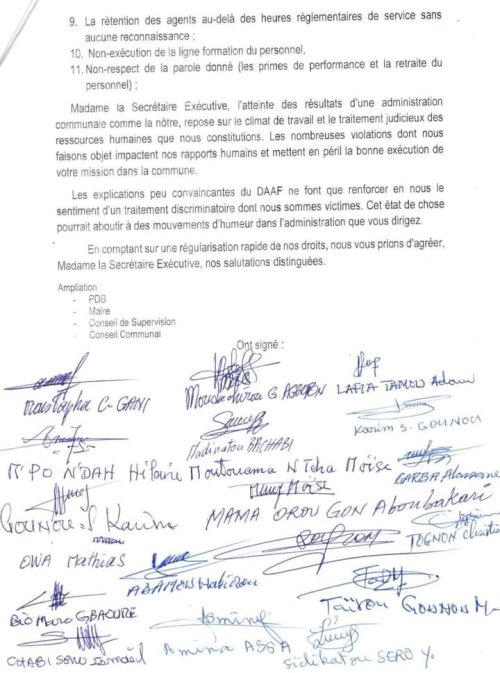 9. La rétention des agents au-delà des heures réglementaires de service sans
aucune reconnaissance ;
10. Non-exécution de la ligne formation du personnel,
11. Non-respect de la parole donné (les primes de performance et la retraite du
personnel) ;
Madame la Secrétaire Exécutive, l'atteinte des résultats d'une administration
communale comme la nôtre, repose sur le climat de travail et le traitement judicieux des
ressources humaines que nous constituons. Les nombreuses violations dont nous
faisons objet impactent nos rapports humains et mettent en péril la bonne exécution de
votre mission dans la commune.
Les explications peu convaincantes du DAAF ne font que renforcer en nous le
sentiment d'un traitement discriminatoire dont nous sommes victimes. Cet état de chose
pourrait aboutir à des mouvements d'humeur dans l'administration que vous dirigez.
En comptant sur une régularisation rapide de nos droits, nous vous prions d'agréer,
Madame la Secrétaire Exécutive, nos salutations distinguées.
Ampliation :
- PDB
- Maire
- Conseil de Supervision
- Conseil Communal
Ont signé :
Moustapha C. GANI
G. AGBOGBN LAFIA TAMOU Adam
Karim S. GOUNOU
Madinatou BACHABI
N'PO N'DAH Hilaire Moutouama N'Tcha Moïse
Moïse
GARBA Alassane
GOUNOU S Karim MAMA OROU GON Aboubakari
TOGNON Christian
OWA Mathias
ADAMOU
Bio Maro GBAOURE Taïrou GOUNOU M.
CHABI SERO Ismaël Amina ASSA Sidikatou SERO Y.